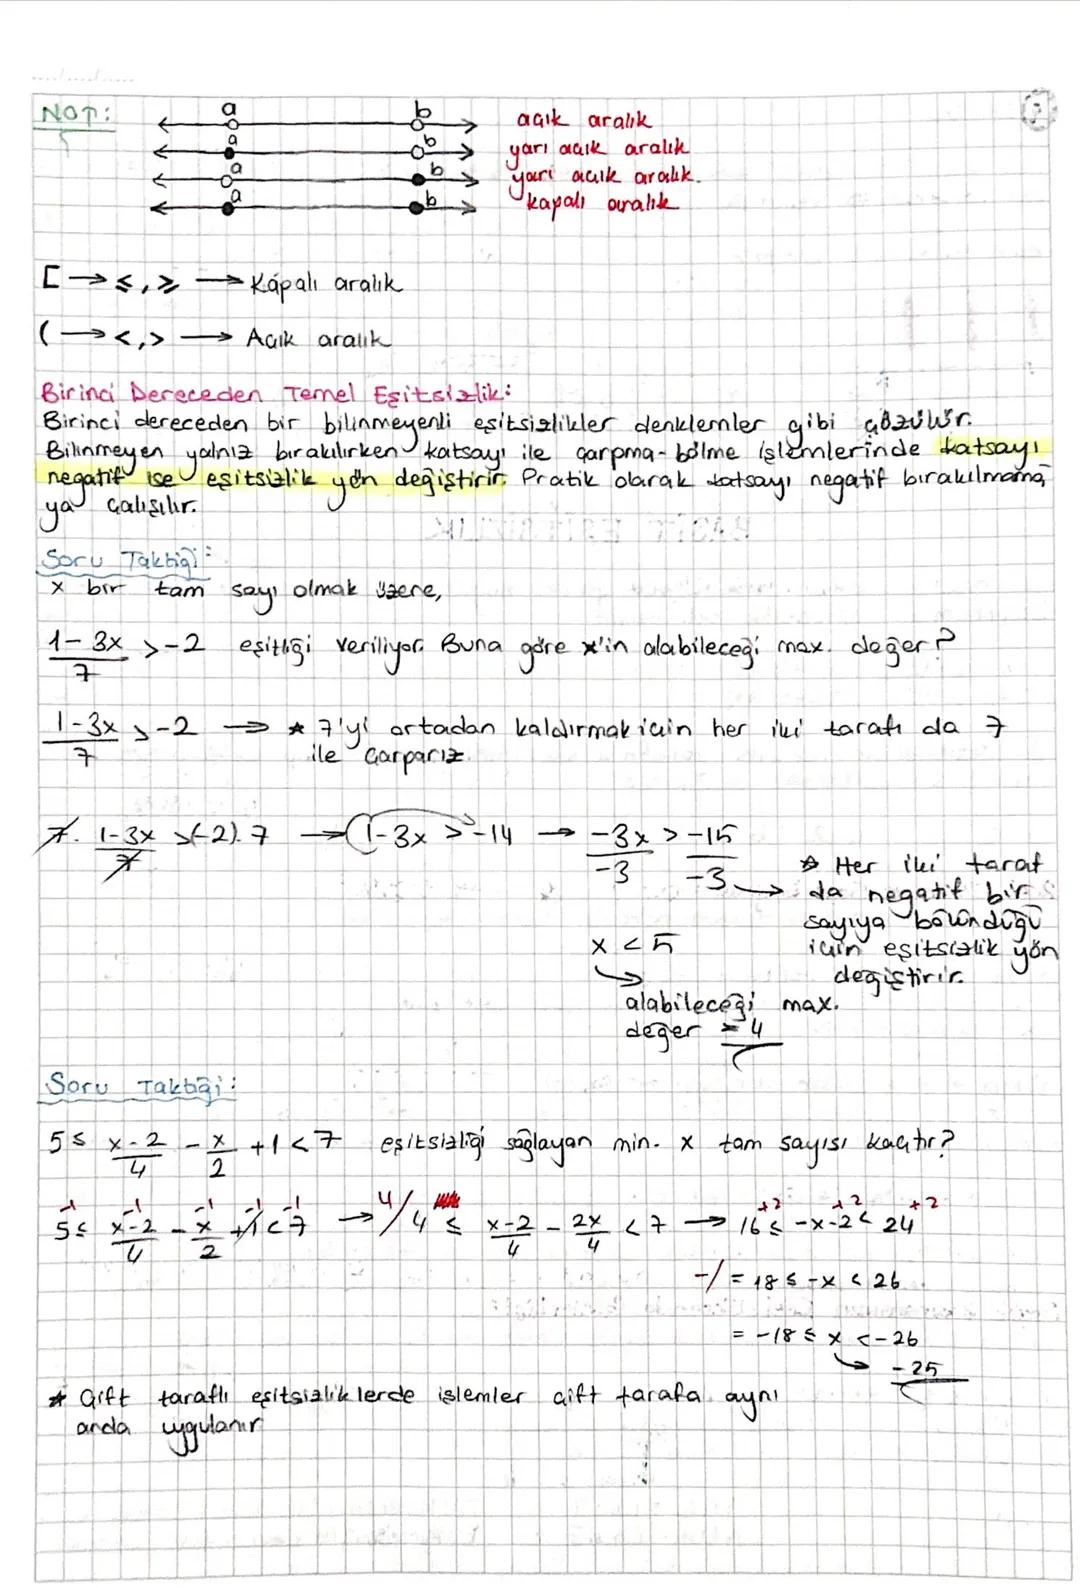 NOT:
a b açık aralık
a b yarı açık aralık
a b yarı açık aralık.
a b kapalı aralık
[ → ≤, ≥ → Kapalı aralık
( → <, > → Açık aralık
Birinci Dereceden Temel Eşitsizlik:
Birinci dereceden bir bilinmeyenli eşitsizlikler denklemler gibi çözülür.
Bilinmeyen yalnız bırakılırken katsayı ile çarpma-bölme işlemlerinde katsayı
negatif ise eşitsizlik yön değiştirir. Pratik olarak katsayı negatif bırakılmama
ya çalışılır.
Soru Taktiği:
x bir tam sayı olmak üzere,
(1-3x)/7 > -2 eşitliği veriliyor. Buna göre x'in alabileceği max. değer?
(1-3x)/7 > -2 → * 7'yi ortadan kaldırmak için her iki tarafı da 7
ile çarparız.
7. (1-3x)/7 > (-2).7 → 1-3x > -14 → -3x/-3 > -15/-3
* Her iki taraf
da negatif bir
sayıya bölündüğü
için eşitsizlik yön
değiştirir.
x < 5
alabileceği max.
değer = 4
Soru Taktiği:
5 ≤ (x-2)/4 - x/2 + 1 < 7 eşitsizliği sağlayan min. x tam sayısı kaçtır?
-1 -1 -1 -1 -1 4/ +2 +2 +2
5 ≤ (x-2)/4 - x/2 + 1 < 7 → 4 ≤ (x-2)/4 - 2x/4 < 7 → 16 ≤ -x-2 < 24
-/ = 18 ≤ -x < 26
= -18 ≤ x < -26
-25
* Çift taraflı eşitsizliklerde işlemler çift tarafa aynı
anda uygulanır